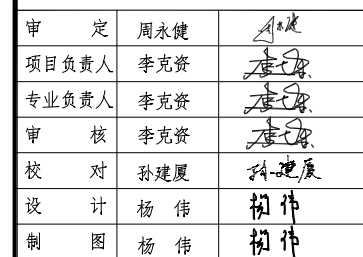 审 定 周永健 周永健
项目负责人 李克资 李克资
专业负责人 李克资 李克资
审 核 李克资 李克资
校 对 孙建厦 孙建厦
设 计 杨 伟 杨伟
制 图 杨 伟 杨伟